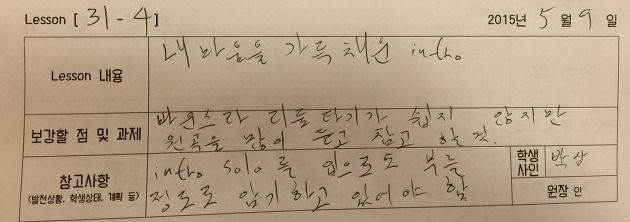 Lesson [ 31 - 4 ] 2015년 5 월 9 일
Lesson 내용 내 마음을 가득 채운 intro
보강할 점 및 과제 바운스라 리듬타기가 쉽지 않지만
원곡을 많이 듣고 참고 할 것.
참고사항 (발전상황, 학생상태, 계획 등) intro solo를 입으로도 부를
정도로 암기하고 있어야 함
학생 사인 박상
원장 인